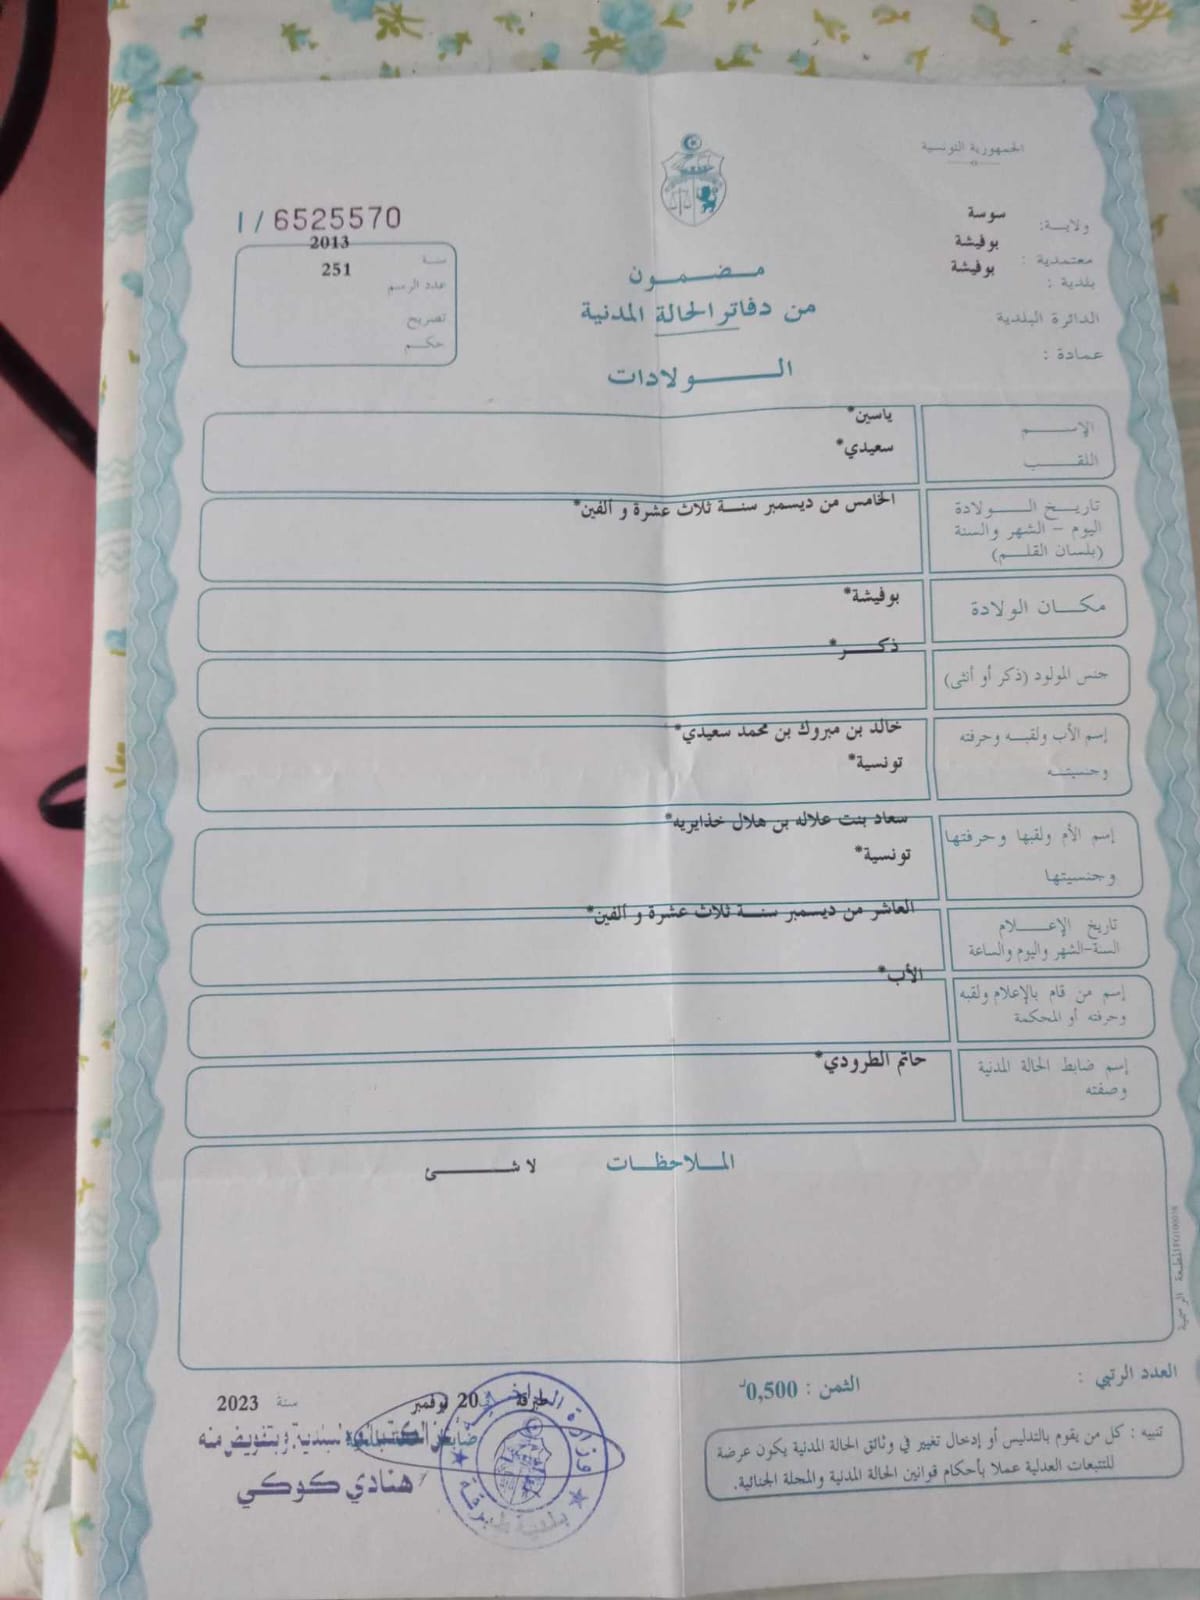 الجمهورية التونسية
ولاية: سوسة
معتمدية : بوفيشة
بلدية : بوفيشة
الدائرة البلدية
عمادة :
I / 6525570
سنة 2013
عدد الرسم 251
تصريح
حكم
مضمون
من دفاتر الحالة المدنية
الولادات
الإسم ياسين*
اللقب سعيدي*
تاريخ الولادة الخامس من ديسمبر سنة ثلاث عشرة و ألفين*
اليوم - الشهر والسنة
(بلسان القلم)
مكان الولادة بوفيشة*
جنس المولود (ذكر أو أنثى) ذكر*
إسم الأب ولقبه وحرفته خالد بن مبروك بن محمد سعيدي*
وجنسيته تونسية*
إسم الأم ولقبها وحرفتها سعاد بنت علاله بن هلال خذايريه*
وجنسيتها تونسية*
تاريخ الإعلام العاشر من ديسمبر سنة ثلاث عشرة و ألفين*
السنة-الشهر واليوم والساعة
إسم من قام بالإعلام ولقبه الأب*
وحرفته أو المحكمة
إسم ضابط الحالة المدنية حاتم الطرودي*
وصفته
الملاحظات لا شئ
المطبعة الرسمية
العدد الرتبي :
الثمن : 0,500د
تنبيه : كل من يقوم بالتدليس أو إدخال تغيير في وثائق الحالة المدنية يكون عرضة
للتتبعات العدلية عملا بأحكام قوانين الحالة المدنية والمجلة الجنائية.
طبرقة في 20 نوفمبر سنة 2023
وبتفويض منه
هنادي كوكي
وزارة الداخلية
بلدية طبرقة